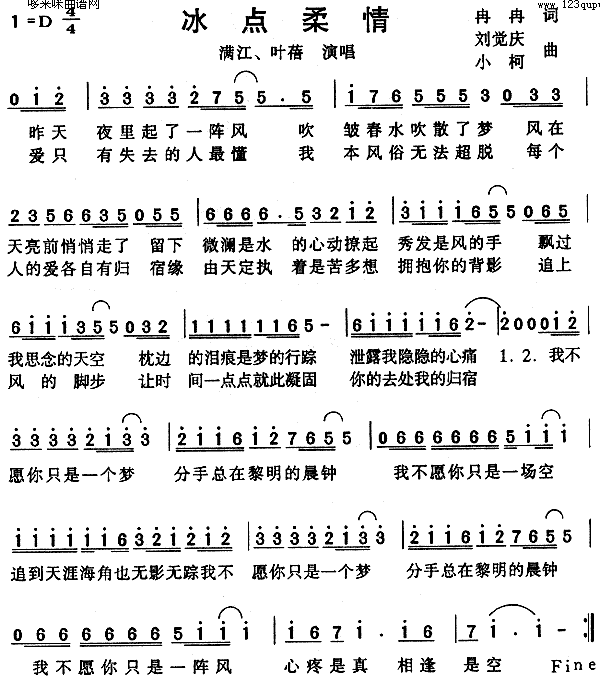 哆来咪曲谱网
www.123qupu
1=D 4/4
冰点柔情
冉冉 词
刘觉庆
小柯 曲
满江、叶蓓 演唱
0 1 2 | 3 3 3 3 2 7 5 5 . 5 | 1 7 6 5 5 5 3 0 3 3
昨天 夜里起了一阵风 吹 皱春水吹散了梦 风在
爱只 有失去的人最懂 我 本风俗无法超脱 每个
2 3 5 6 6 3 5 0 5 5 | 6 6 6 6 . 5 3 2 1 2 | 3 1 1 1 6 5 5 0 6 5
天亮前悄悄走了 留下 微澜是水 的心动撩起 秀发是风的手 飘过
人的爱各自有归 宿缘 由天定执 着是苦多想 拥抱你的背影 追上
6 1 1 1 3 5 5 0 3 2 | 1 1 1 1 1 1 1 6 5 - | 6 1 1 1 1 1 6 6 2 - | 2 0 0 0 1 2
我思念的天空 枕边 的泪痕是梦的行踪 泄露我隐隐的心痛 1.2.我不
风 的 脚步 让时 间一点点就此凝固 你的去处我的归宿
3 3 3 3 2 1 3 3 | 2 1 1 6 1 2 7 6 5 5 | 0 6 6 6 6 6 6 5 1 1 1
愿你只是一个梦 分手总在黎明的晨钟 我不愿你只是一场空
1 1 1 1 1 1 6 3 2 1 2 1 2 | 3 3 3 3 2 1 3 3 | 2 1 1 6 1 2 7 6 5 5
追到天涯海角也无影无踪我不 愿你只是一个梦 分手总在黎明的晨钟
0 6 6 6 6 6 6 5 1 1 1 | 1 6 7 1 . 6 7 | 7 1 . 1 - :||
我不愿你只是一阵风 心疼是真 相逢 是空 Fine